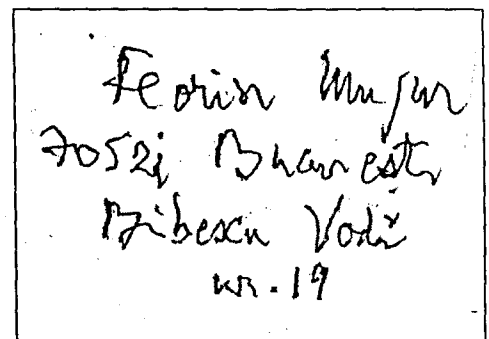 Florin Mugur
70521 București
Bibescu Vodă
nr. 19